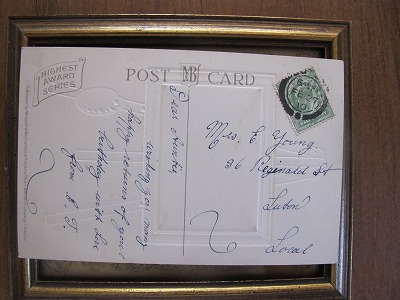 HIGHEST
AWARD
SERIES
POST MB CARD
Dear Aunty
wishing you many
happy returns of your
birthday with love
from E. J.
Mrs. E Young.
36 Reginald St
Luton
Local